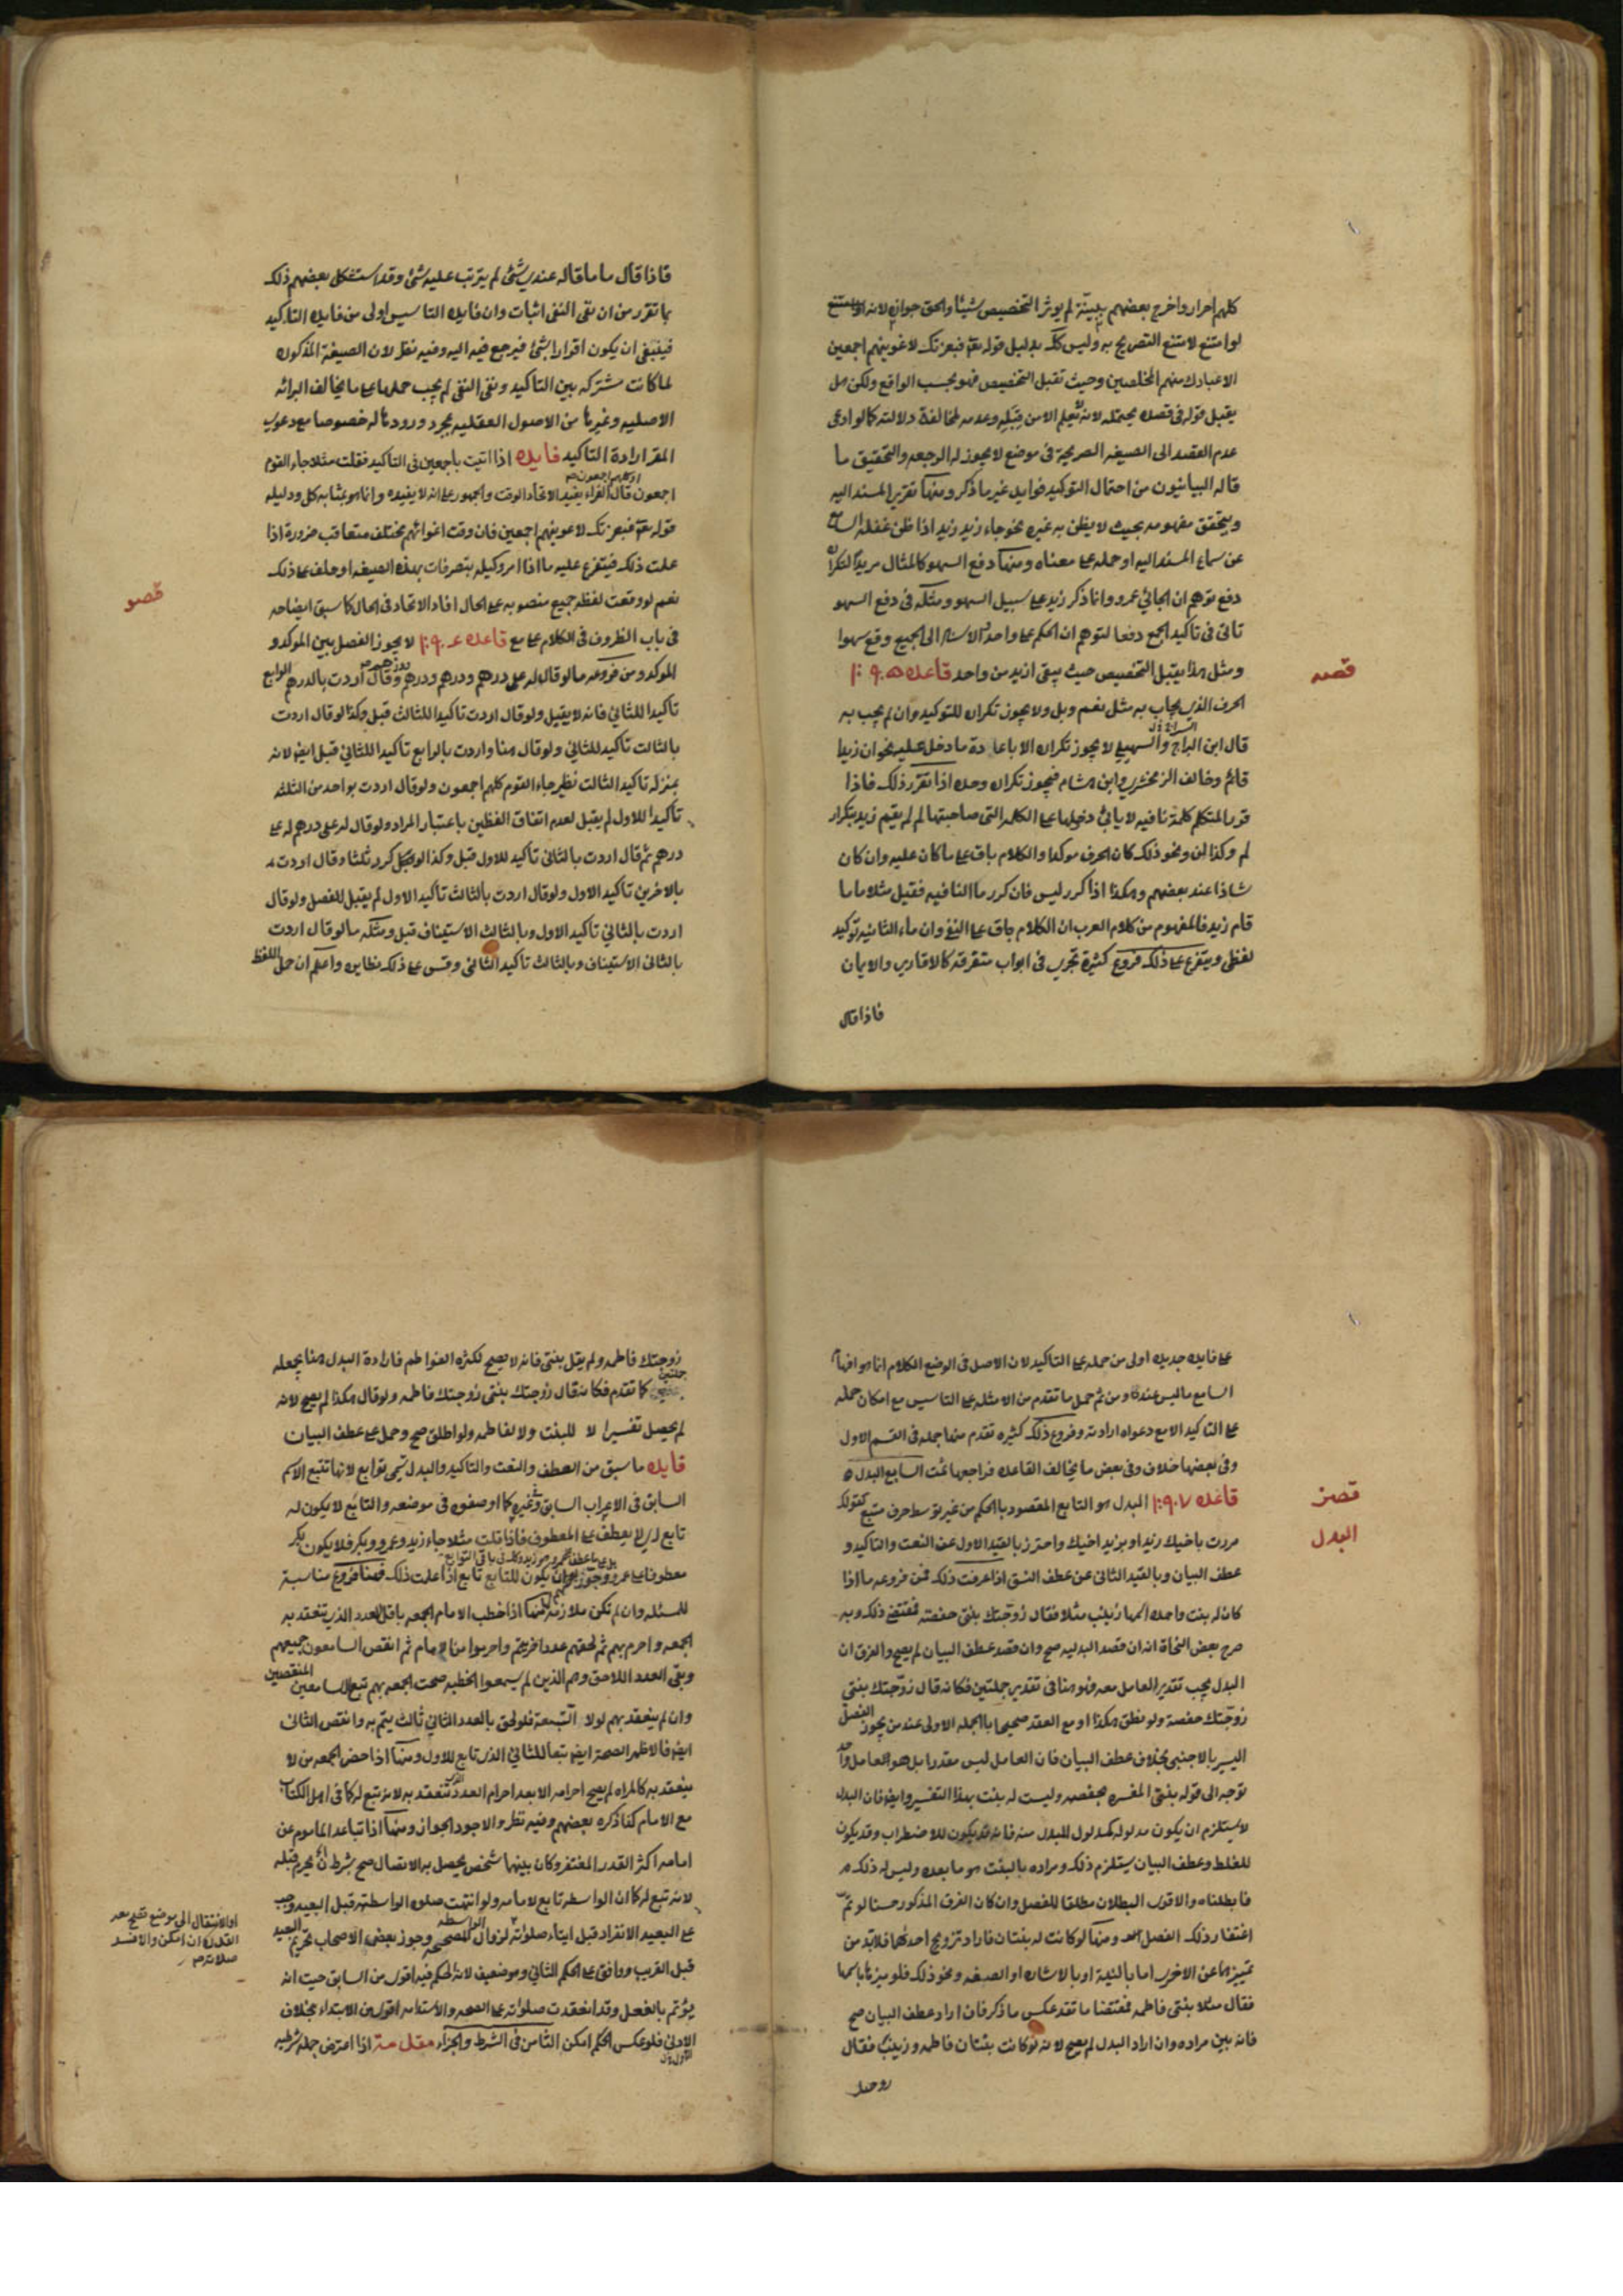 كلهم احرار واخرج بعضهم ببينة لم يوثر التخصيص شيئا والحق جوازه لانه
لو امتنع لامتنع التصريح به وليس كك بدليل قوله تعا فبعزتك لاغوينهم اجمعين
الا عبادك منهم المخلصين وحيث تقبل التخصيص فهو بحسب الواقع ولكن هل
يقبل قوله في قصده يحتمله لانه لا يعلم الا من قبله وعدمه لمخالفة دلالته كما لو ادعى
عدم القصد الى الصيغه الصريحة في موضع لا يجوز له الرجعه والتحقيق ما
قاله البيانيون من احتمال التوكيد فوايد غير ما ذكر ومنها تقرير المسند اليه
ويتحقق مفهومه بحيث لا يظن به غيره نحو جاء زيد زيد اذا ظن غفله السامع
عن سماع المسند اليه او حمله على معناه ومنها دفع السهو كالمثال مريدا لتكرار
دفع توهم ان الجائي عمرو وانما ذكر زيد على سبيل السهو ومثله في دفع السهو
تاتى في تاكيد الجمع دفعا لتوهم ان الحكم على واحد وان الاسناد الى الجميع وقع سهوا
قصه
ومثل هذا يقبل التخصيص حيث يبقى ازيد من واحد قاعده
الحرف الذي يجاب به مثل نعم وبل ولا يجوز تكراره للتوكيد وان لم يجب به
قال ابن السراج والسهيلي لا يجوز تكراره الا باعادة ما دخل عليه نحو ان زيدا
قائم وخالف الزمخشري وابن هشام فيجوز تكراره وحده اذا تقرر ذلك فاذا
كرر المتكلم كلمة نافيه لا ياتي دخولها على الكلمه التى صاحبتها لم لم يقم زيد بتكرار
لم وكذا لن ونحو ذلك كان الحرف موكدا والكلام باق على ما كان عليه وان كان
شاذا عند بعضهم وهكذا اذا كرر ليس فان كرر ما النافيه فقيل مثلا ما ما
قام زيد فالمفهوم من كلام العرب ان الكلام باق على النفي وان ماء الثانيه توكيد
لفظى ويتفرع على ذلك فروع كثيرة تجري في ابواب متفرقه كالاقارير والايمان
فاذا قال
فاذا قال ما ما قاله عندي شئ لم يترتب عليه شئ وقد استشكل بعضهم ذلك
بما تقرر من ان نفى النفى اثبات وان فايده التاسيس اولى من فايده التاكيد
فينبغى ان يكون اقرارا بشئ فيرجع فيه اليه وفيه نظر لان الصيغة المذكوره
لما كانت مشتركه بين التاكيد ونفى النفى لم يجب حملها على ما يخالف البرائه
الاصليه وغيرها من الاصول العقليه بمجرد ورودها له خصوصا مع دعوى
المقر ارادة التاكيد فايده اذا اتيت باجمعين في التاكيد فقلت مثلا جاء القوم
اجمعون قال الفراء يفيد الاتحاد الوقت والجمهور على انه لا يفيده وانما هو بمثابه كل ودليله
قوله تعا فبعزتك لاغوينهم اجمعين فان وقت اغوائهم مختلف متعاقب ضرورة اذا
علمت ذلك فيتفرع عليه ما اذا امر وكيله بتصرفات بهذه الصيغه او حلف على ذلك
نعم لو وقعت لفظه جميع منصوبه على الحال افاد الاتحاد في الحال كما سبق ايضاحه
قصو
في باب الظروف في الكلام على مع قاعده لا يجوز الفصل بين الموكد و
الموكد ومن فروعه ما لو قال له على درهم ودرهم ودرهم ودرهم وقال اردت بالدرهم الرابع
تاكيدا للثاني فانه لا يقبل ولو قال اردت تاكيدا للثالث قبل وكذا لو قال اردت
بالثالث تاكيد للثاني ولو قال هنا واردت بالرابع تاكيدا للثاني قبل ايضا لانه
بمنزله تاكيد الثالث نظير جاء القوم كلهم اجمعون ولو قال اردت بواحد من الثلثه
تاكيدا للاول لم يقبل لعدم اتفاق اللفظين باعتبار المراد ولو قال له على درهم له على
درهم ثم قال اردت بالثاني تاكيد للاول قبل وكذا لو كرر ثلثا وقال اردت
بالاخرين تاكيد الاول ولو قال اردت بالثالث تاكيد الاول لم يقبل للفصل ولو قال
اردت بالثاني تاكيد الاول وبالثالث الاستيناف قبل ومثله ما لو قال اردت
بالثاني الاستيناف وبالثالث تاكيد الثاني وقس على ذلك نظايره واعلم ان حمل اللفظ
على فايده جديده اولى من حمله على التاكيد لان الاصل في الوضع الكلام انما هو افهام
السامع ما ليس عنده ومن ثم حمل ما تقدم من الامثله على التاسيس مع امكان حمله
على التاكيد الا مع دعواه ارادته وفروع ذلك كثيره تقدم منها جمله في القسم الاول
وفي بعضها خلاف وفي بعض ما يخالف القاعده فراجعها ثمت السابع البدل
قصز
البدل
قاعده البدل هو التابع المقصود بالحكم من غير توسط حرف متبع كقولك
مررت باخيك زيد او بزيد اخيك واحترز بالقيد الاول عن النعت والتاكيد و
عطف البيان وبالقيد الثاني عن عطف النسق اذا عرفت ذلك فمن فروعه ما اذا
كان له بنت واحده اسمها زينب مثلا فقال زوجتك بنتى حفصه فمقتضى ذلك وبه
صرح بعض النحاة انه ان قصد البدليه صح وان قصد عطف البيان لم يصح والفرق ان
البدل يجب تقدير العامل معه فهو هنا في تقدير جملتين فكانه قال زوجتك بنتي
زوجتك حفصة ولو نطق هكذا وقع العقد صحيحا بالجمله الاولى عند من يجوز الفصل
اليسير بالاجنبي بخلاف عطف البيان فان العامل ليس مقدرا بل هو العامل واحد
توجه الى قوله بنتي المفسره بحفصه وليست له بنت بهذا التفسير وايضا فان البدل
لا يستلزم ان يكون مدلوله كمدلول المبدل منه فانه قد يكون للاضطراب وقد يكون
للغلط وعطف البيان يستلزم ذلك ومراده بالبنت هو ما بعده وليس له ذلك
فابطلناه والاقوى البطلان مطلقا للفصل وان كان الفرق المذكور حسنا لو تم
اغتفار ذلك الفصل ومنها لو كانت له بنتان فاراد تزويج احدهما فلا بد من
تمييزها عن الاخرى اما بالنية او بالاشاره او الصفه ونحو ذلك فلو ميزها باسمها
فقال مثلا بنتى فاطمه فمقتضى ما تقدم عكس ما ذكر فان اراد عطف البيان صح
فانه بين مراده وان اراد البدل لم يصح لانه لو كانت بنتان فاطمه وزينب فقال
زوجتك فاطمه ولم يقل بنتى فانه لا يصح لكثرة الفواطم فارادة البدل هنا يجعله
جملتين كما تقدم فكانه قال زوجتك بنتى زوجتك فاطمه ولو قال هكذا لم يصح لانه
لم يحصل تفسيرا لا للبنت ولا لفاطمه ولو اطلق صح وحمل على عطف البيان
فايده ما سبق من العطف والنعت والتاكيد والبدل تسمى توابع لانها تتبع الاسم
السابق في الاعراب السابق وغيره كما اوضحوه في موضعه والتابع لا يكون له
تابع لا يعطف على المعطوف فاذا قلت مثلا جاء زيد وعمرو وبكر فلا يكون بكر
معطوفا على عمرو وجوز ان يكون للتابع تابع اذا علمت ذلك فهنا فروع مناسبة
للمسئله وان لم تكن ملازمة منها اذا خطب الامام الجمعه باقل العدد الذي تنعقد به
الجمعه واحرم بهم ثم لحقهم عدد اخر تم واحرموا مع الامام ثم انفض السامعون جميعهم
وبقى العدد اللاحق وهم الذين لم يسمعوا الخطبه صحت الجمعه بهم تبع السامعين المنفضين
وان لم ينعقد بهم لولا التبعة فلو لحق بالعدد الثاني ثالث يتم به وانفض الثاني
ايضا فالاظهر الصحة ايضا تبعا للثاني الذي تابع للاول ومنها اذا حضر الجمعه من لا
ينعقد به كالمراه لم يصح احرامه الا بعد احرام العدد الذي تنعقد به لانه تبع له كما في اهل الكتاب
مع الامام كذا ذكره بعضهم وفيه نظر والاجود الجواز ومنها اذا تباعد الماموم عن
امامه اكثر القدر المغتفر وكان بينهما شخص يحصل به الاتصال صح بشرط ان يحرم قبله
لانه تبع له كما ان الواسطه تابع لامامه ولو انتهت صلوه الواسطه قبل البعيد وجب
على البعيد الانفراد قبل انتهاء صلوته لزوال المصحح وجوز بعض الاصحاب تحريم البعيد
او الانتقال الى موضع تصح معه
القدوة ان امكن والا فسد
صلاته صح
قبل القريب ووافق على الحكم الثاني وهو ضعيف لان الحكم فيه اقوى من السابق حيث انه
يؤتم بالفعل وقد انعقدت صلوته على الصحه والاستدامه اقوى من الابتداء بخلاف
الاولى فلو عكس الحكم امكن الثامن في الشرط والجزاء مقدمة اذا اعترض جمله شرطيه